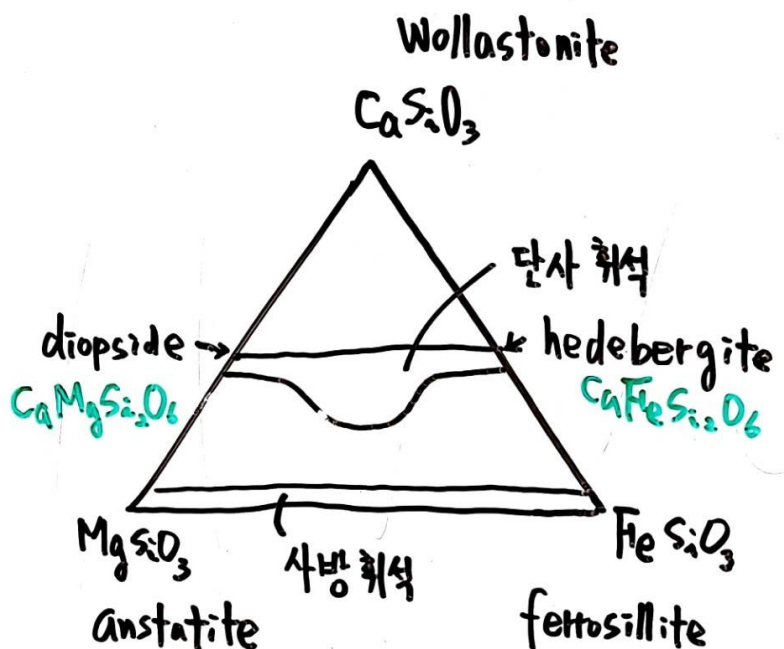 Wollastonite
CaSiO3
단사 휘석
diopside
hedebergite
CaMgSi2O6
CaFeSi2O6
MgSiO3
FeSiO3
사방 휘석
anstatite
ferrosillite